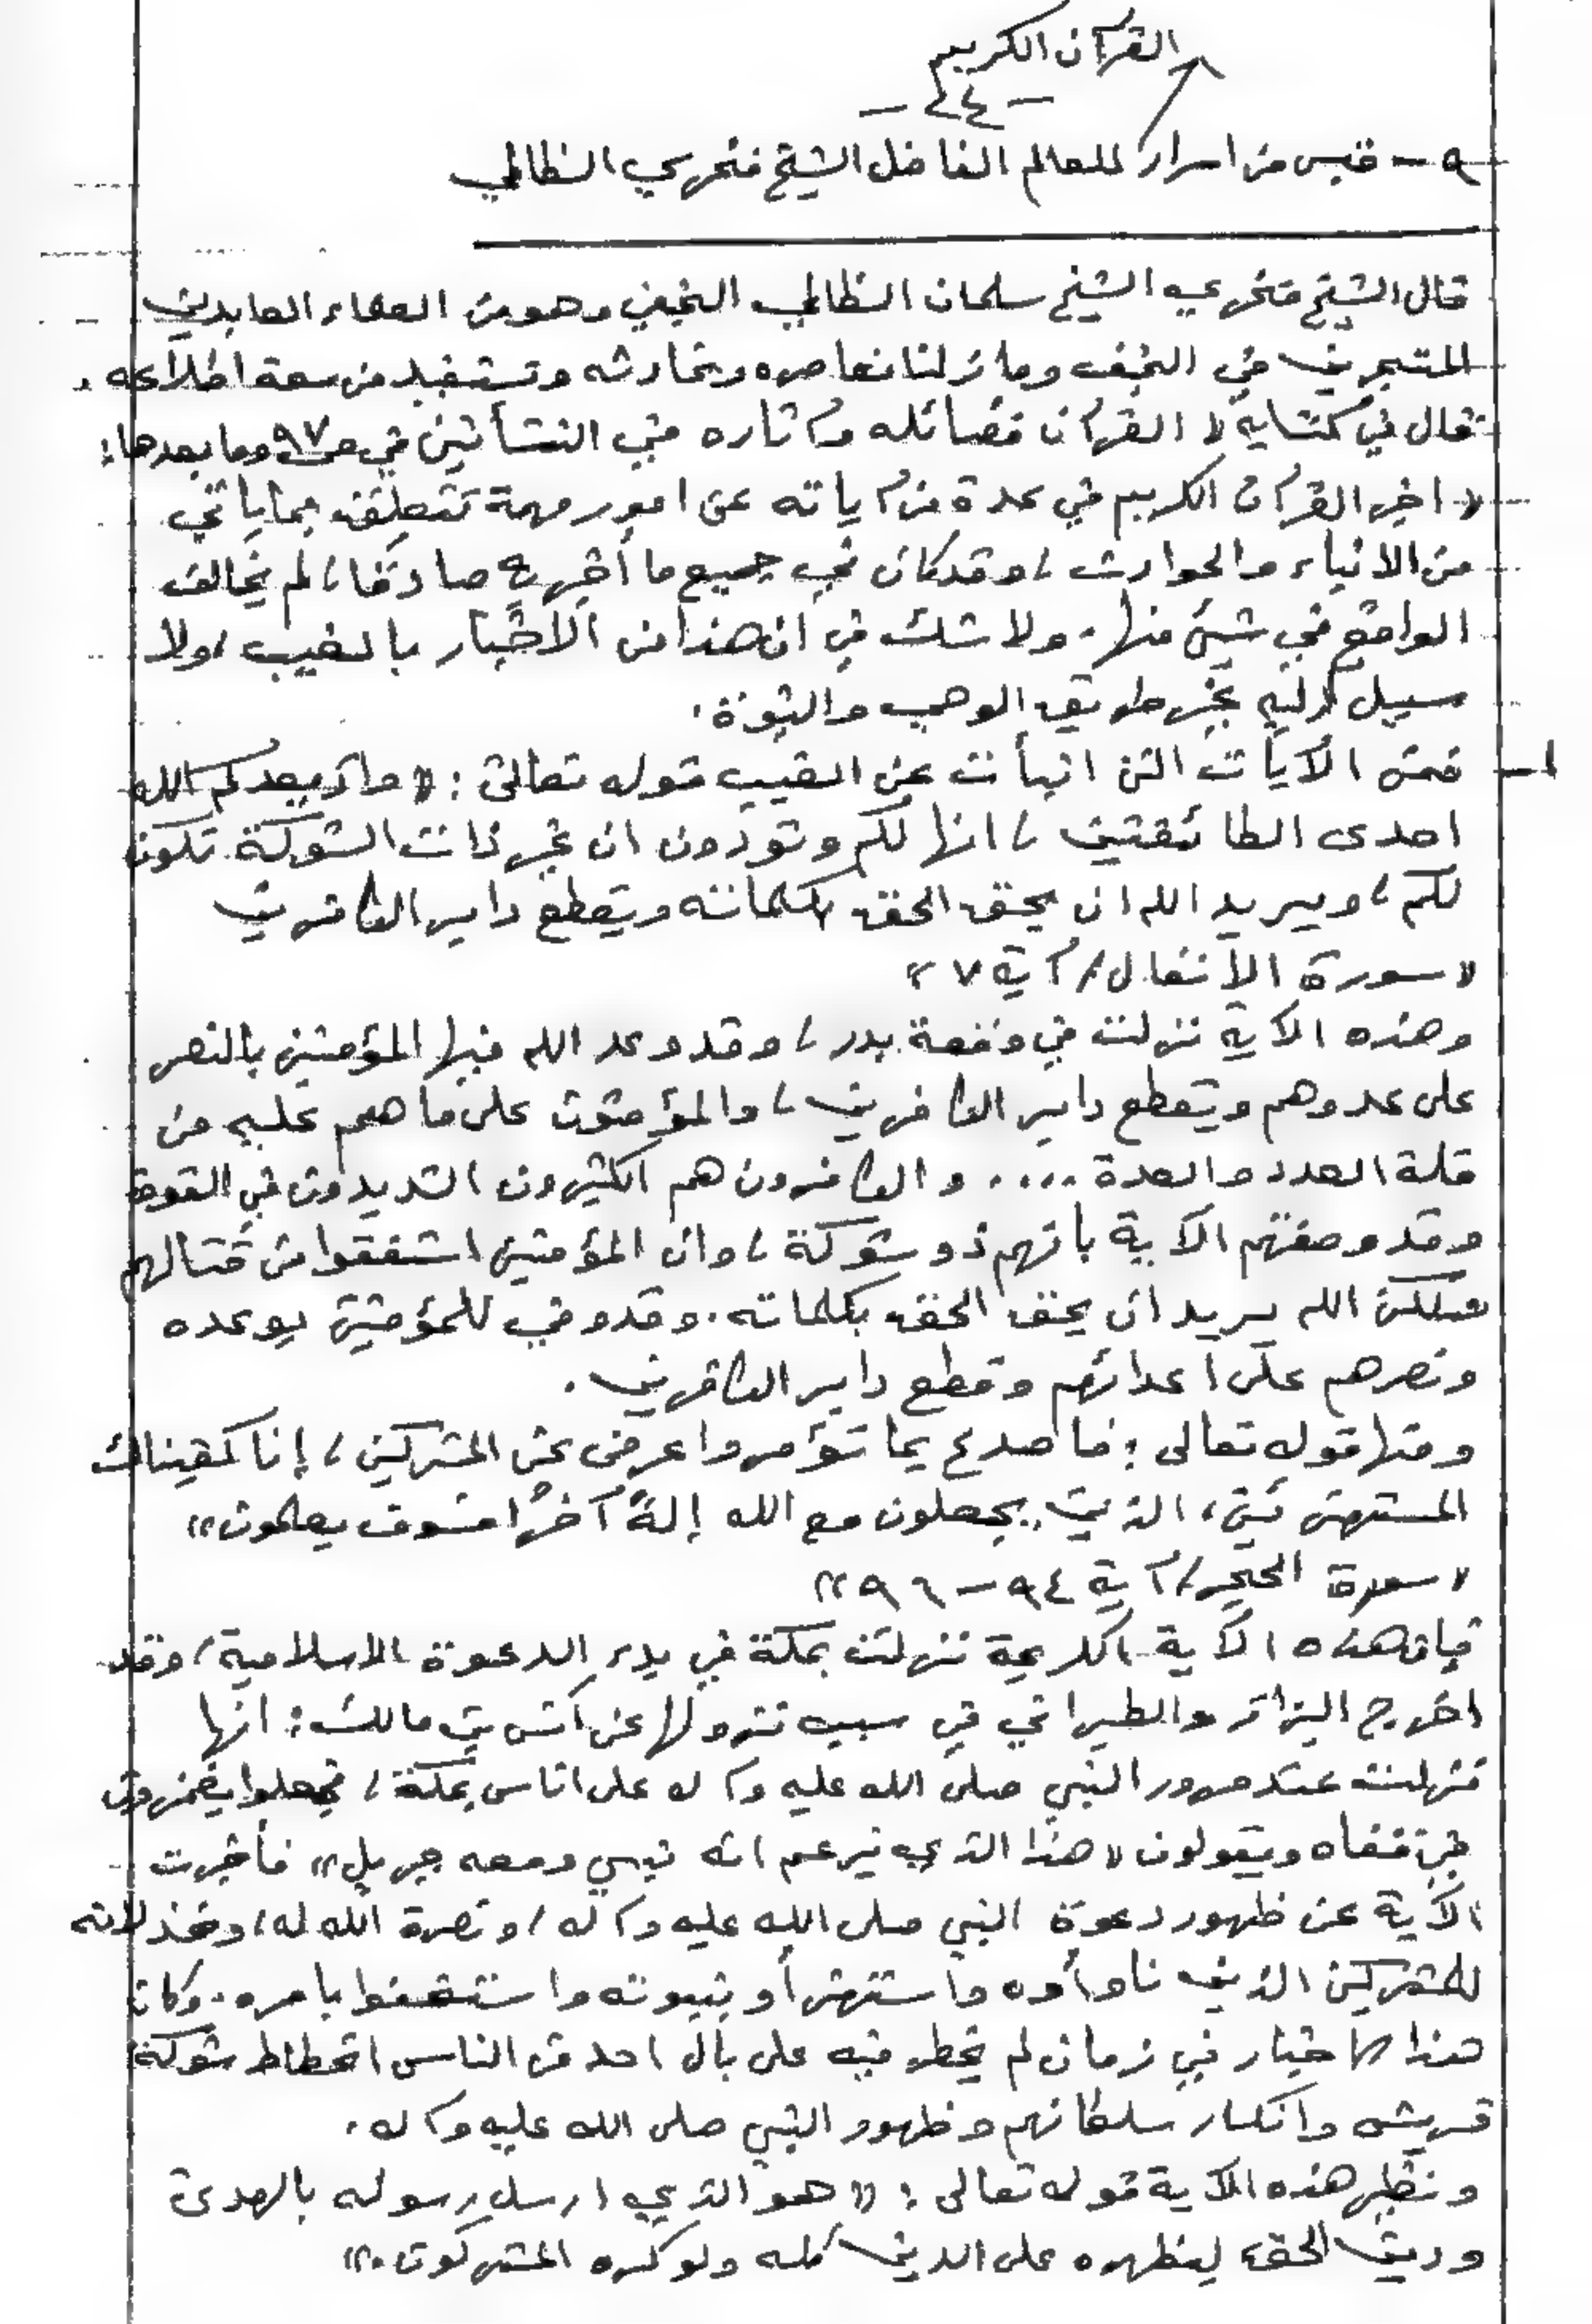 القرآن الكريم
- ٤٤ -
٩ - قبس من اسرار للعالم الفاضل الشيخ فخري الظالمي
قال الشيخ فخري الشيخ سلمان الظالمي النجفي وهو من العلماء العابدين
المتبحرين في النجف وما زلنا نعاصره ونحادثه ونستفيد من سعة اطلاعه .
قال في كتابه « القرآن فضائله وآثاره في النشأتين في ص ٩٧ وما بعدها :
« اخبر القرآن الكريم في عدة من آياته عن امور مهمة تتعلق بما يأتي
من الانباء والحوادث ، وقد كان في جميع ما أخبر به صادقا ، لم يخالف
الواقع في شيئ منها . ولا شك في ان هذا من الأخبار بالغيب ، ولا
سبيل إليه بغير طريق الوحي والنبوة .
١- فمن الآيات التي انبأت عن الغيب قوله تعالى : « واذ يعدكم الله
احدى الطائفتين ، انها لكم وتودون ان غير ذات الشوكة تكون
لكم ، ويريد الله ان يحق الحق بكلماته ويقطع دابر الكافرين
« سورة الأنفال / آية ٧ »
وهذه الآية نزلت في وقعة بدر ، وقد وعد الله فيها المؤمنين بالنصر
على عدوهم ويقطع دابر الكافرين ، والمؤمنون على ما هم عليه من
قلة العدد والعدة .... و الكافرون هم الكثيرون الشديدون في القوة
وقد وصفتهم الآية بأنهم ذو شوكة ، وان المؤمنين اشفقوا من قتالهم
ولكن الله يريد ان يحق الحق بكلماته . وقد وفى للمؤمنين بوعده
ونصرهم على أعدائهم وقطع دابر الكافرين .
ومنها قوله تعالى : فاصدع بما تؤمر واعرض عن المشركين ، إنا كفيناك
المستهزئين ، الذين يجعلون مع الله إلهً آخرُ فسوف يعلمون »
« سورة الحجر / آية ٩٤ - ٩٦ »
فإن هذه الآية الكريمة نزلت بمكة في بدء الدعوة الاسلامية ، وقد
اخرج البزار والطبراني في سبب نزولها عن أنس بن مالك : انها
نزلت عند مرور النبي صلى الله عليه وآله على اناس بمكة ، فجعلوا يغمزون
في قفاه ويقولون « هذا الذي يزعم انه نبي ومعه جبريل » فأخبرت
الآية عن ظهور دعوة النبي صلى الله عليه وآله ، ونصرة الله له ، وخذلانه
للمشركين الذين ناوأوه واستهزأوا بنبوته واستخفوا بامره . وكان
هذا الاخبار في زمان لم يخطر فيه على بال احد من الناس انحطاط شوكة
قريش وانكسار سلطانهم وظهور النبي صلى الله عليه وآله .
ونظير هذه الآية قوله تعالى : « هو الذي ارسل رسوله بالهدى
ودين الحق ليظهره على الدين كله ولو كره المشركون . »